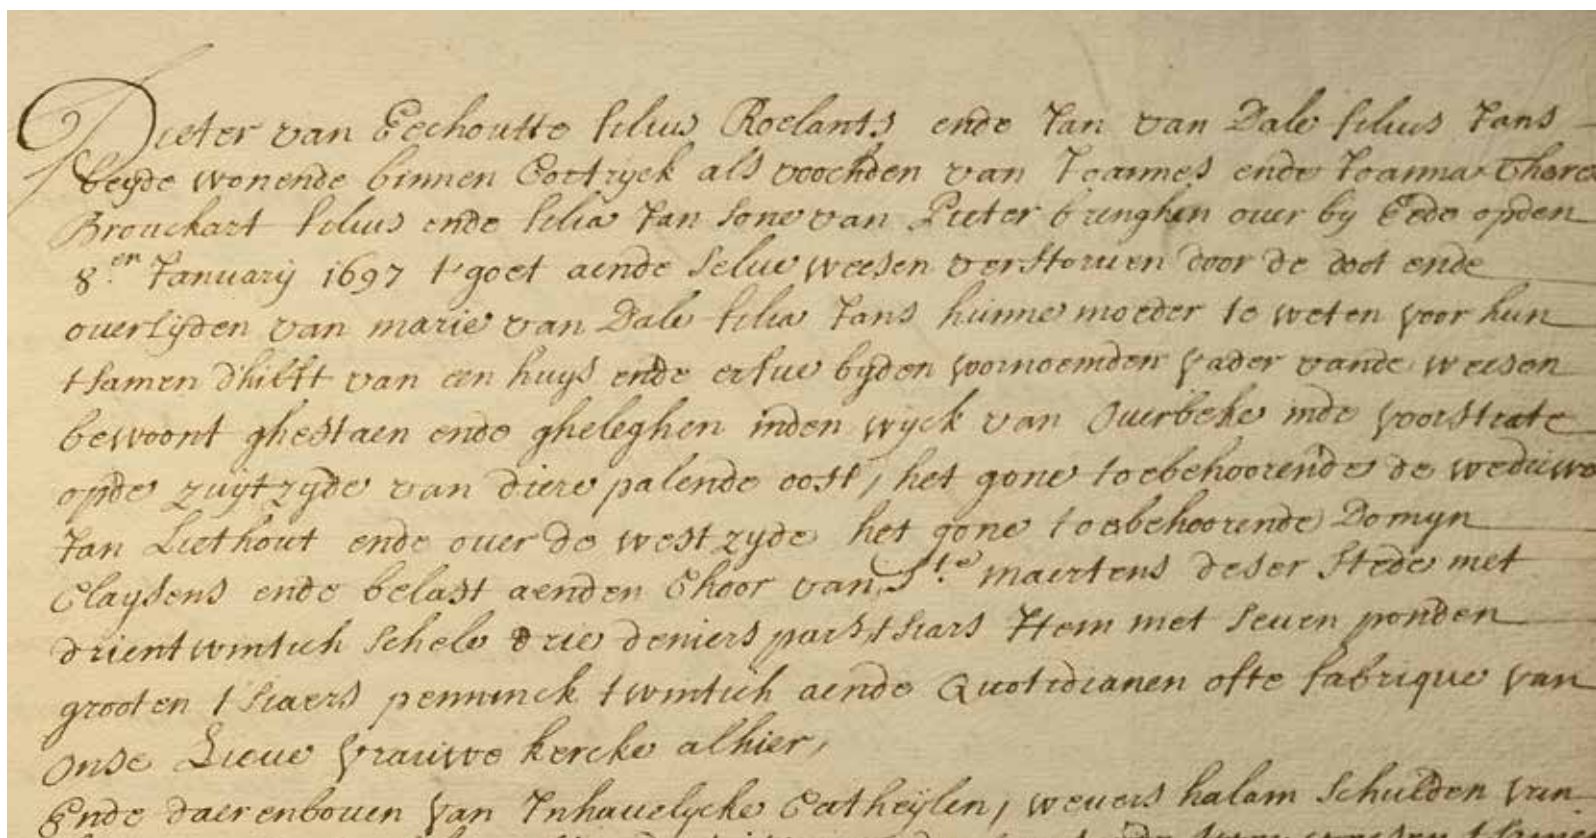 Pieter van Eechoutte filius Roelants ende Jan van Dale filius Jans
beyde wonende binnen Cortryck als voochden van Joannes ende Joanna There
Brouckart filius ende filia Jan sone van Pieter brenghen over by Eede opden
8.en January 1697 t'goet aende selve weesen verstorven door de doot ende
overlyden van marie van Dale filia Jans hunne moeder te weten voor hun
tsamen d'hilft van een huys ende erfve byden voornoemden vader vande weesen
bewoont ghestaen ende gheleghen inden wyck van Overbeke inde voorstrate
opde zuytzyde van diere palende oost, het gone toebehoorende de weduwe
Jan Liethout ende over de westzyde het gone toebehoorende Domyn
Claysens ende belast aenden Choor van Ste maertens deser stede met
drientwintich schele drie deniers pars, tsiars Item met seven ponden
grooten tsiaers penninck twintich aende Quotidianen ofte fabrique van
onse Lieve vrauwe kercke alhier,
Ende daerenboven van Inhavelycke Catheylen, wevers halam schulden van